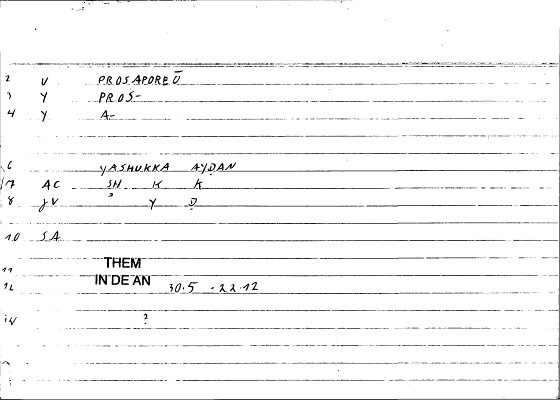 2 V PROSAPOREŪ
3 Y PROS-
4 Y A-
6 YASHUKKA AYḌAN
7 AC SH K K
8 JV ? Y Ḍ
10 SA
11 THEM
12 IN DE AN 30.5 .22.12
14 ?